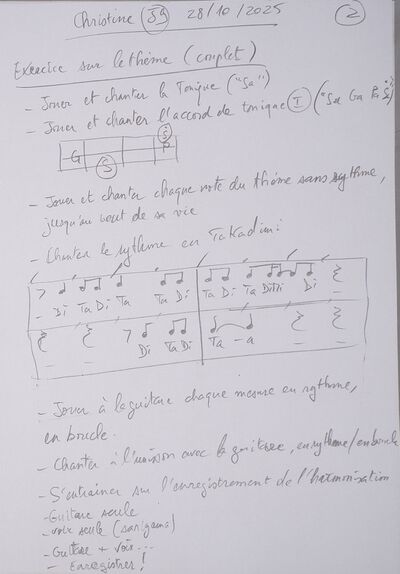 Christine 59 28/10/2025 2
Exercice sur le thème (couplet)
- Jouer et chanter la Tonique ("Sa")
- Jouer et chanter l'accord de tonique I ("Sa Ga Pa Ṡ
G S P Ṡ
- Jouer et chanter chaque note du thème sans rythme,
jusqu'au bout de sa vie
- Chanter le rythme en TaKadimi:
- Di Ta Di Ta Ta Di Ta Di Ta Di Di -
- - Di Ta Di Ta -a - -
- Jouer à la guitare chaque mesure en rythme,
en boucle.
- Chanter à l'unisson avec la guitare, en rythme/en boucle
- S'entraîner sur l'enregistrement de l'harmonisation
- Guitare seule
- voix seule (sargams)
- Guitare + voix...
- Enregistrer!